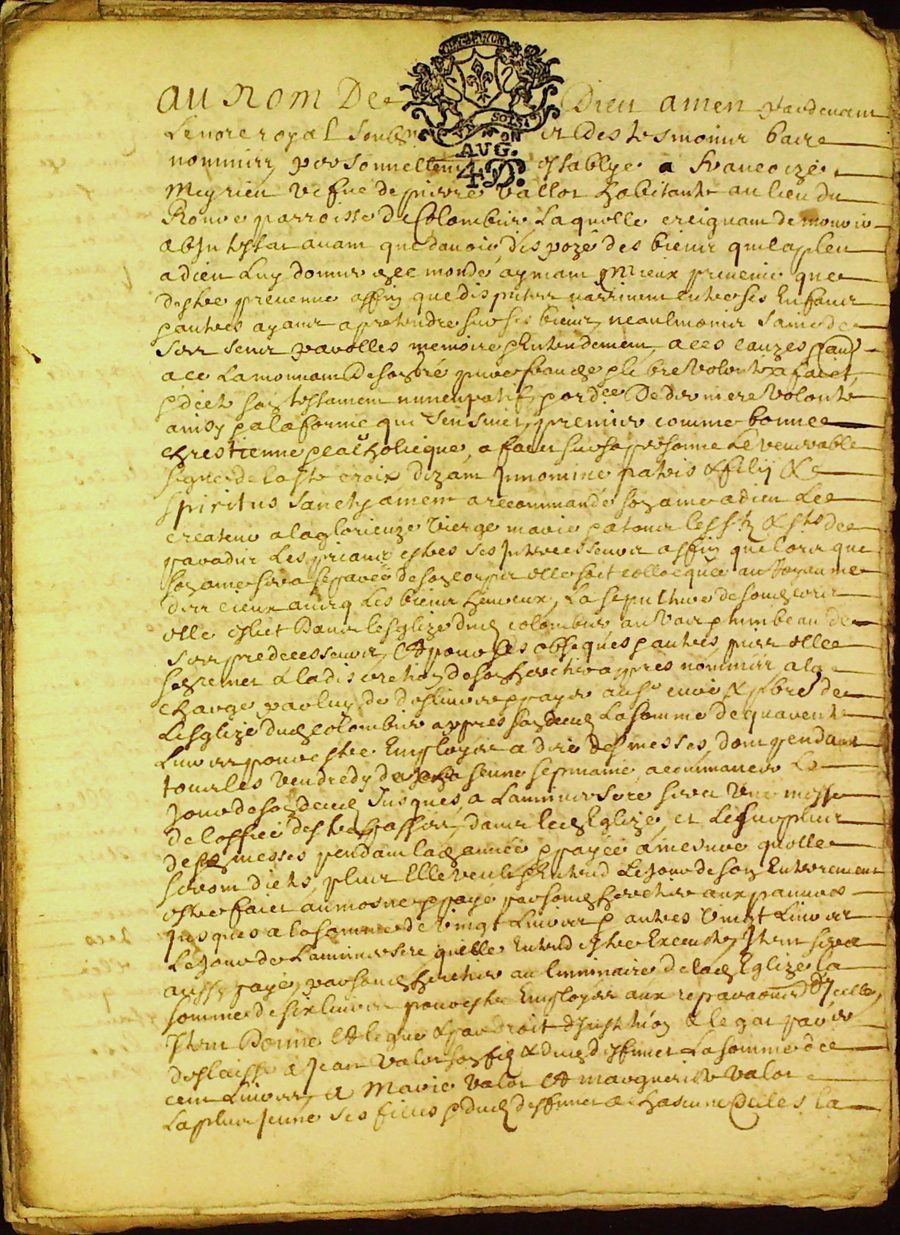 au Nom De Dieu amen pardevant
Le no.re royal soub.né et des tesmoins bas
nommés personnellem.t establye a francoize
Meyrieu vefue de pierre Vallot habitante au lieu du
parroisse de Colombier Laquelle creignant de mourir
abintestat avant que d'avoir dispozé des biens quil a pleu
a dieu luy donner en ce monde aymant mieux prevenir que
destre prevenue affin que disputes narrivent entre ses Enfans
& autres ayant a pretendre sur ses biens, neaulmoins saine de
ses sens parolles memoire & Entendement, a ces cauzes
de son gré pure franche & libre volonté a faict
& dict son testament nuncupatif & ord.ce De derniere volonté
ainsy & a la forme qui sensuit, premier comme bonne
chrestienne & catholicque, a faict sur sa personne Le venerable
signe de la ste croix dizant In nomine patris & filij &
spiritus sancty amen a recommandé son ame a dieu Le
createur a la glorieuze vierge marie & a tous les sts & stes de
paradis Les priant estre ses Intercesseurs affin que lors que
son ame sera separée de son corps elle soit collocquée au Royaume
des cieux avecq Les biens heureux, La sepulture de son corps
elle eslit Dans lesglize dud colombier au Vas & tumbeau de
ses predecesseurs, Et pour ses obseques & autres, pies elle
sen remet a la discretion de son heritier apres nommé a la
charge par luy de deslivrer & payer au sr curé & pbres de
Lesglize dud colombier appres son deces La somme de quarente
Livres pour estre Employés a dire des messes, dont pendant
tous les vendredy de chascune sepmaine a commancer Le
Jour de son deces Jusques, a Lanniversere sera Une messe
de loffice des trespassés, dans lad Eglize, et Le surplus
desd messes pendant lad année & payée a mesure quelles
seront dictes, plus Elle veult & Entend Le Jour de son Enterrement
estre faict aumosne & payé par sond heretier aux pauvres
jusques a la somme de Vingt Livres & autres Vingt Livres
Le Jour de Lanniversere quelle Entend estre Executé, Item sera
aussy payé, par sond heretier au luminaire de lad Eglize la
somme de six livres pour estre Employés aux reparaons d'Icelle,
Item Donne Et legue & par droit d'Institu.on & legat par elle
deslaisse a Jean Valot son fils & dud deffunct La somme de
cent Livres, a Marie Valot Et marguerite Valot
La plus Jeune ses filles & dud deffunct a chascune d'Icelles la
AUG.
4 D.